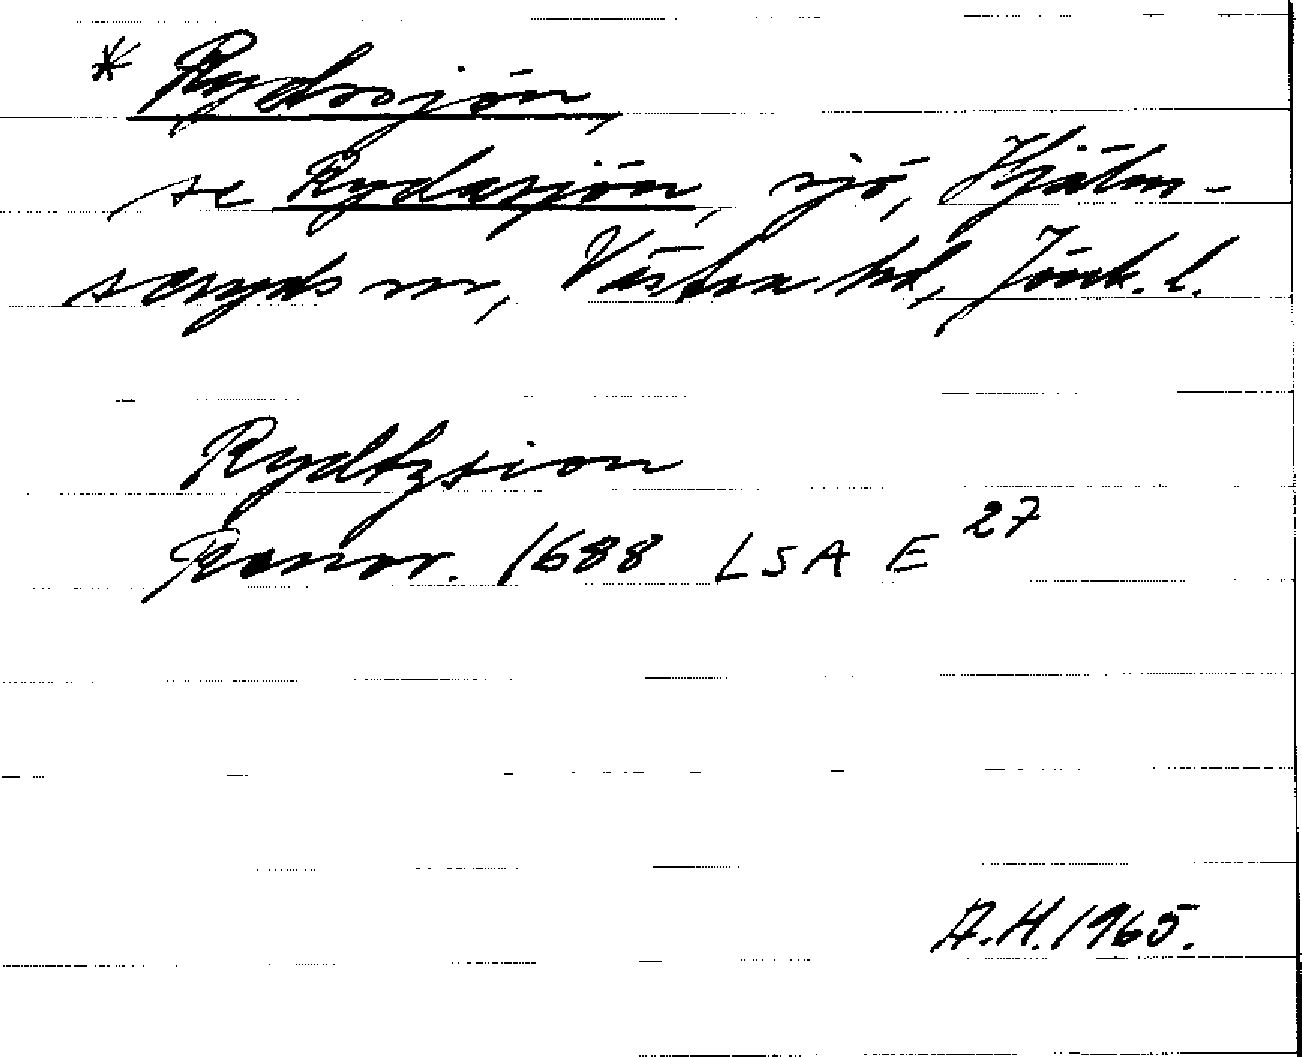 * Rydssjön,
se Rydasjön, sjö, Hjälm-
seryds sn, Västra hd, Jönk. l.
Rydtzsion
Rannr. 1688 LSA E 27
A.H. 1965.